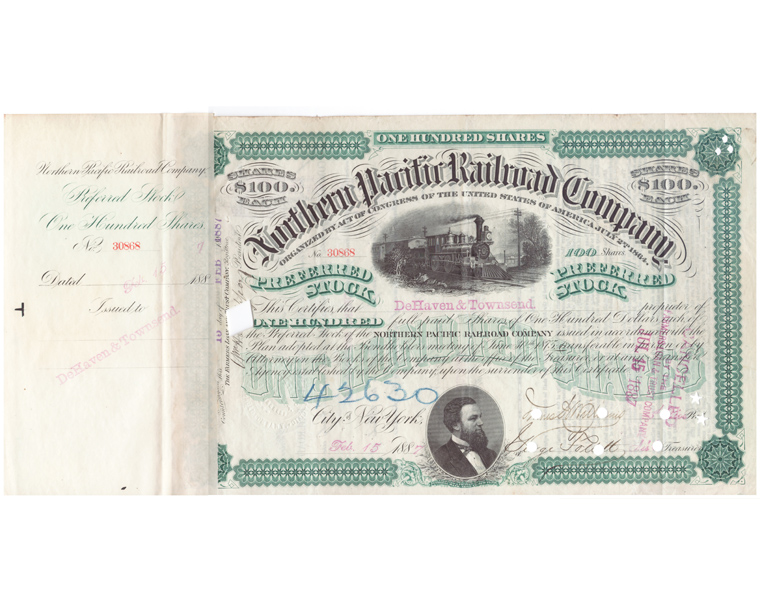 Northern Pacific Railroad Company.
Preferred Stock
One Hundred Shares
No. 30868
Dated Feb 15 188
Issued to
DeHaven & Townsend.
ONE HUNDRED SHARES
SHARES $100. EACH
SHARES $100. EACH
Northern Pacific Railroad Company
ORGANIZED BY ACT OF CONGRESS OF THE UNITED STATES OF AMERICA JULY 2ND 1864.
No. 30868
100 Shares
PREFERRED STOCK
PREFERRED STOCK
This Certifies, that DeHaven & Townsend. proprietor of
ONE HUNDRED full paid Shares of One Hundred Dollars each of
the Preferred Stock of the NORTHERN PACIFIC RAILROAD COMPANY issued in accordance with the
Plan adopted at the Bondholders meeting June 30 1875 transferable in person or by
Attorney on the Books of the Company at the office of the Treasurer or at any
Agency established by the Company, upon the surrender of this Certificate.
42630
City of New York,
Feb. 15 188
George
Treasurer
CANCELLED
1887
FEB 1881